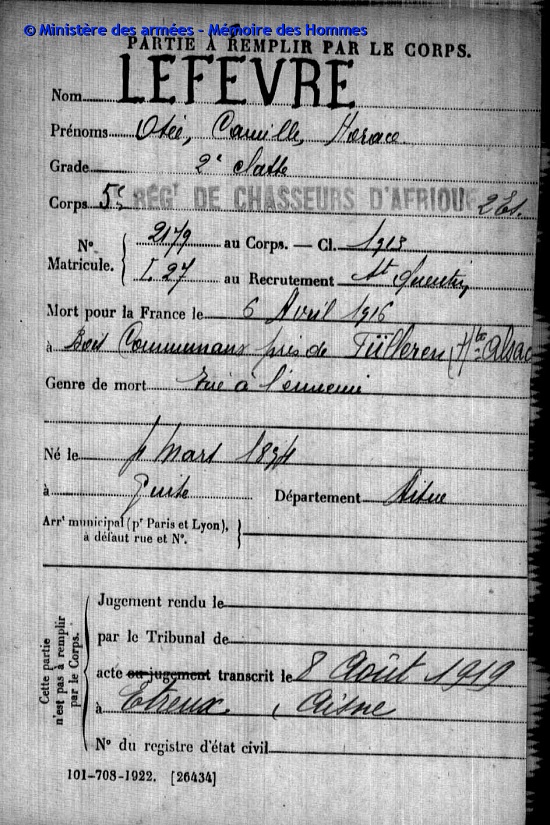 © Ministère des armées - Mémoire des Hommes
PARTIE À REMPLIR PAR LE CORPS.
Nom LEFEVRE
Prénoms Osée, Camille, Horace
Grade 2e classe
Corps 5e RÉGT DE CHASSEURS D'AFRIQUE
No Matricule. { 2179 au Corps. — Cl. 1913
au Recrutement St Quentin
Mort pour la France le 6 Avril 1916
à Bois Communaux près de Fülleren, Hte Alsac
Genre de mort Tué à l'ennemi
Né le Mars
à Guise Département Aisne
Arrt municipal (pr Paris et Lyon),
à défaut rue et No. }
Cette partie
n'est pas à remplir
par le Corps.
Jugement rendu le
par le Tribunal de
acte ou jugement transcrit le 8 Août 1919
à Etreux, Aisne
No du registre d'état civil
101-708-1922. [26434]